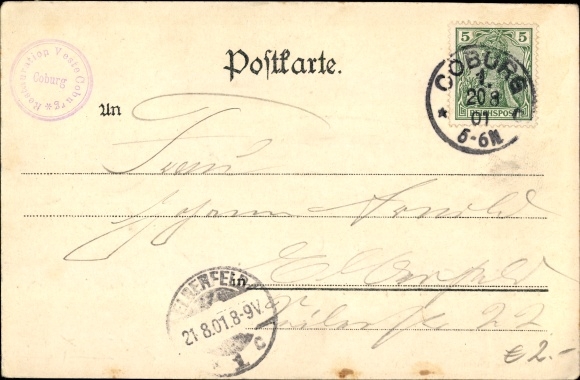 Restauration Veste Coburg
Coburg
Postkarte.
5
REICHSPOST
COBURG
1
20 8
01
5-6N
An
Frau
Johann Arnold
in
Elberfeld
22
ELBERFELD
21.8.01.8-9V.
1 c
€ 2.-